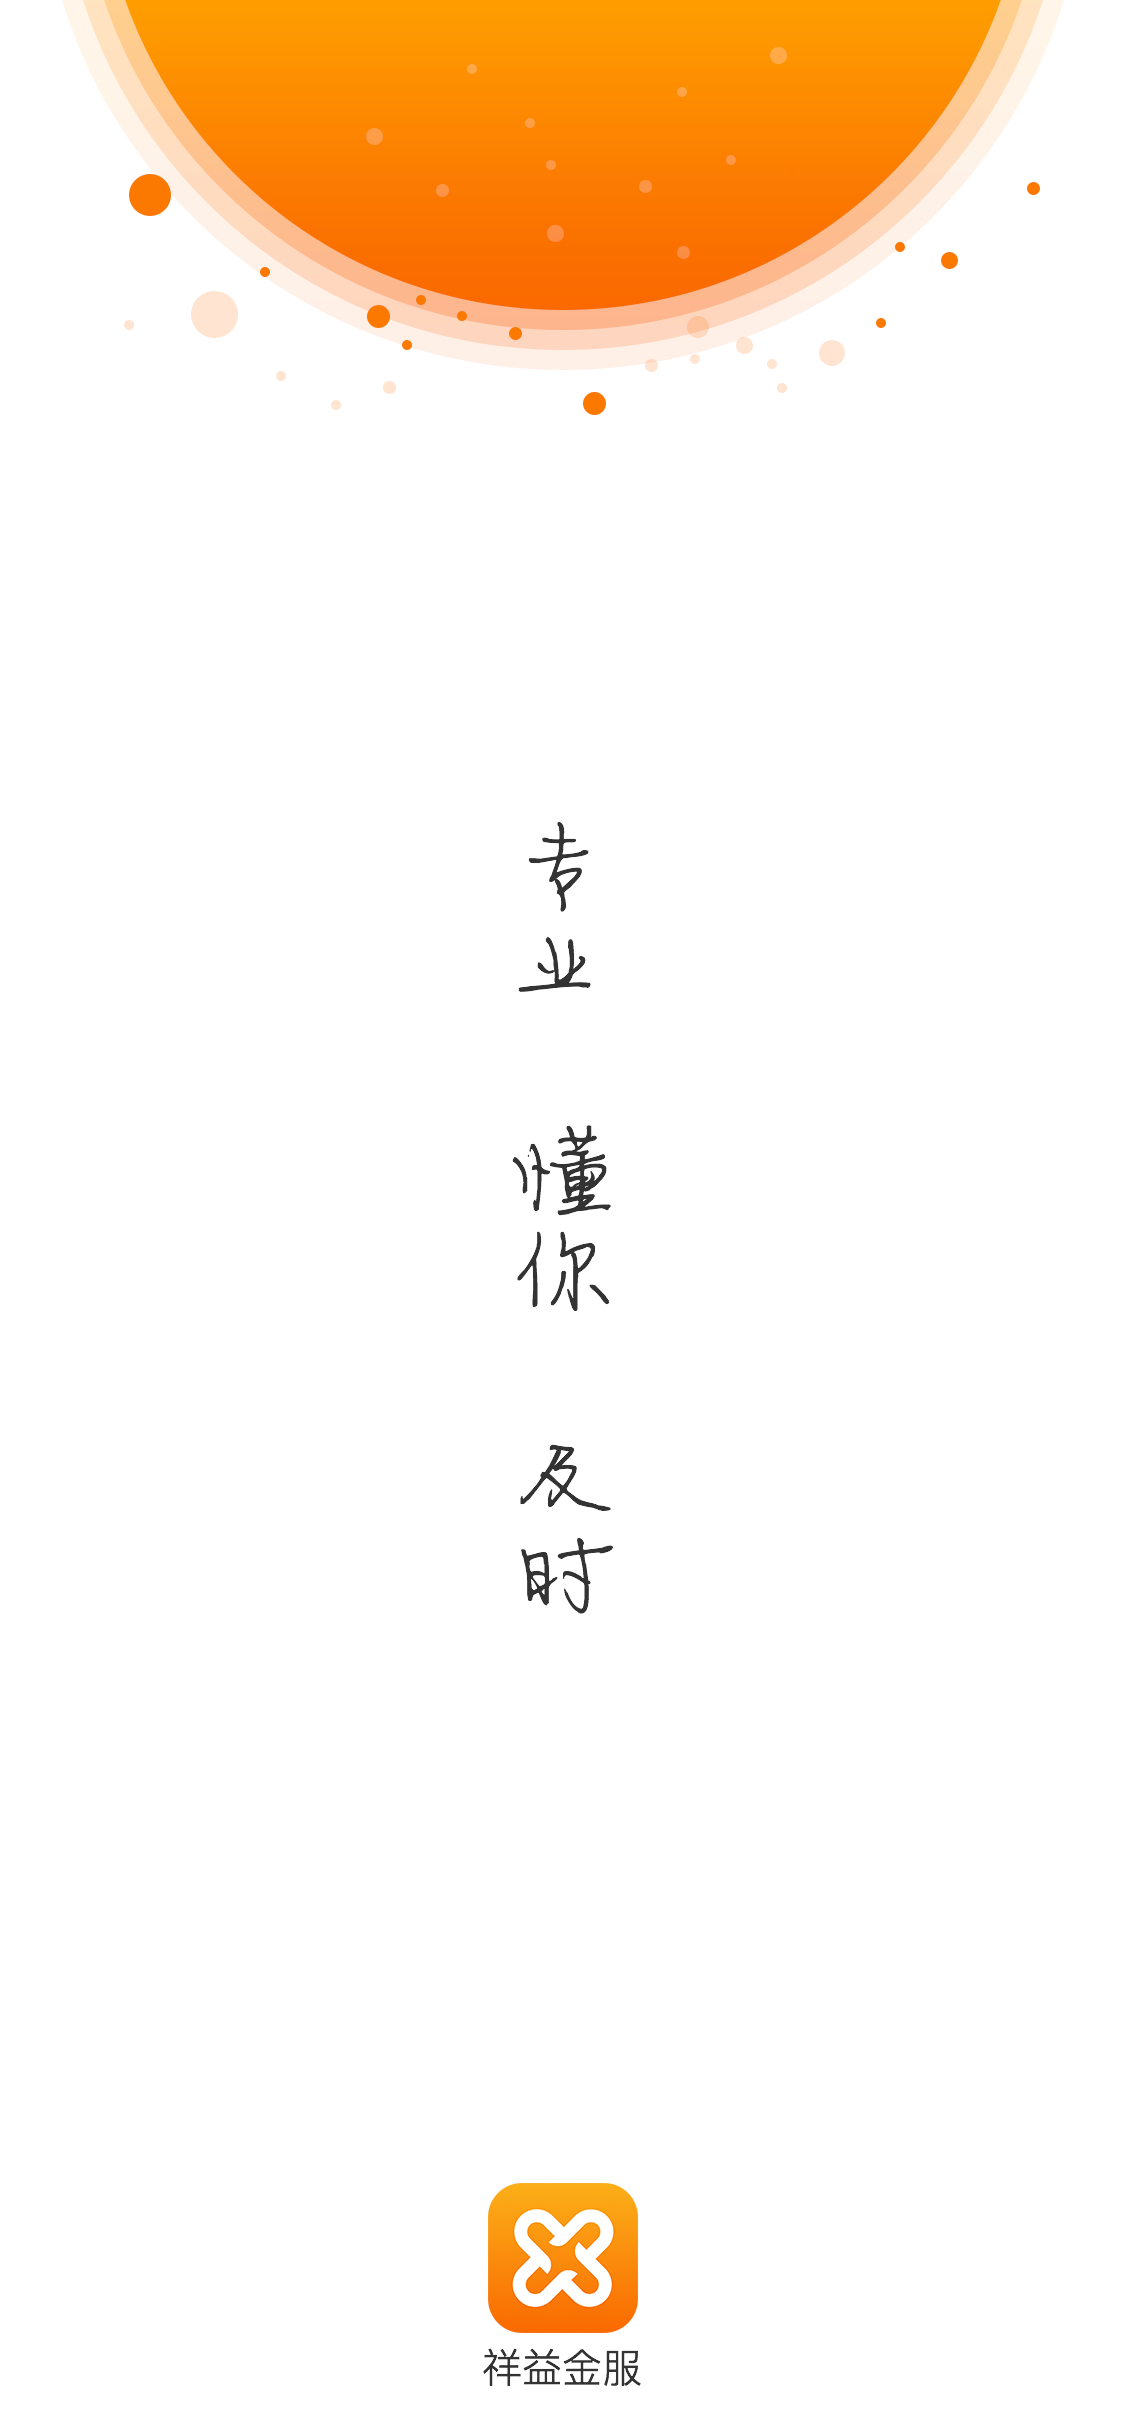 专业
懂你
及时
祥益金服